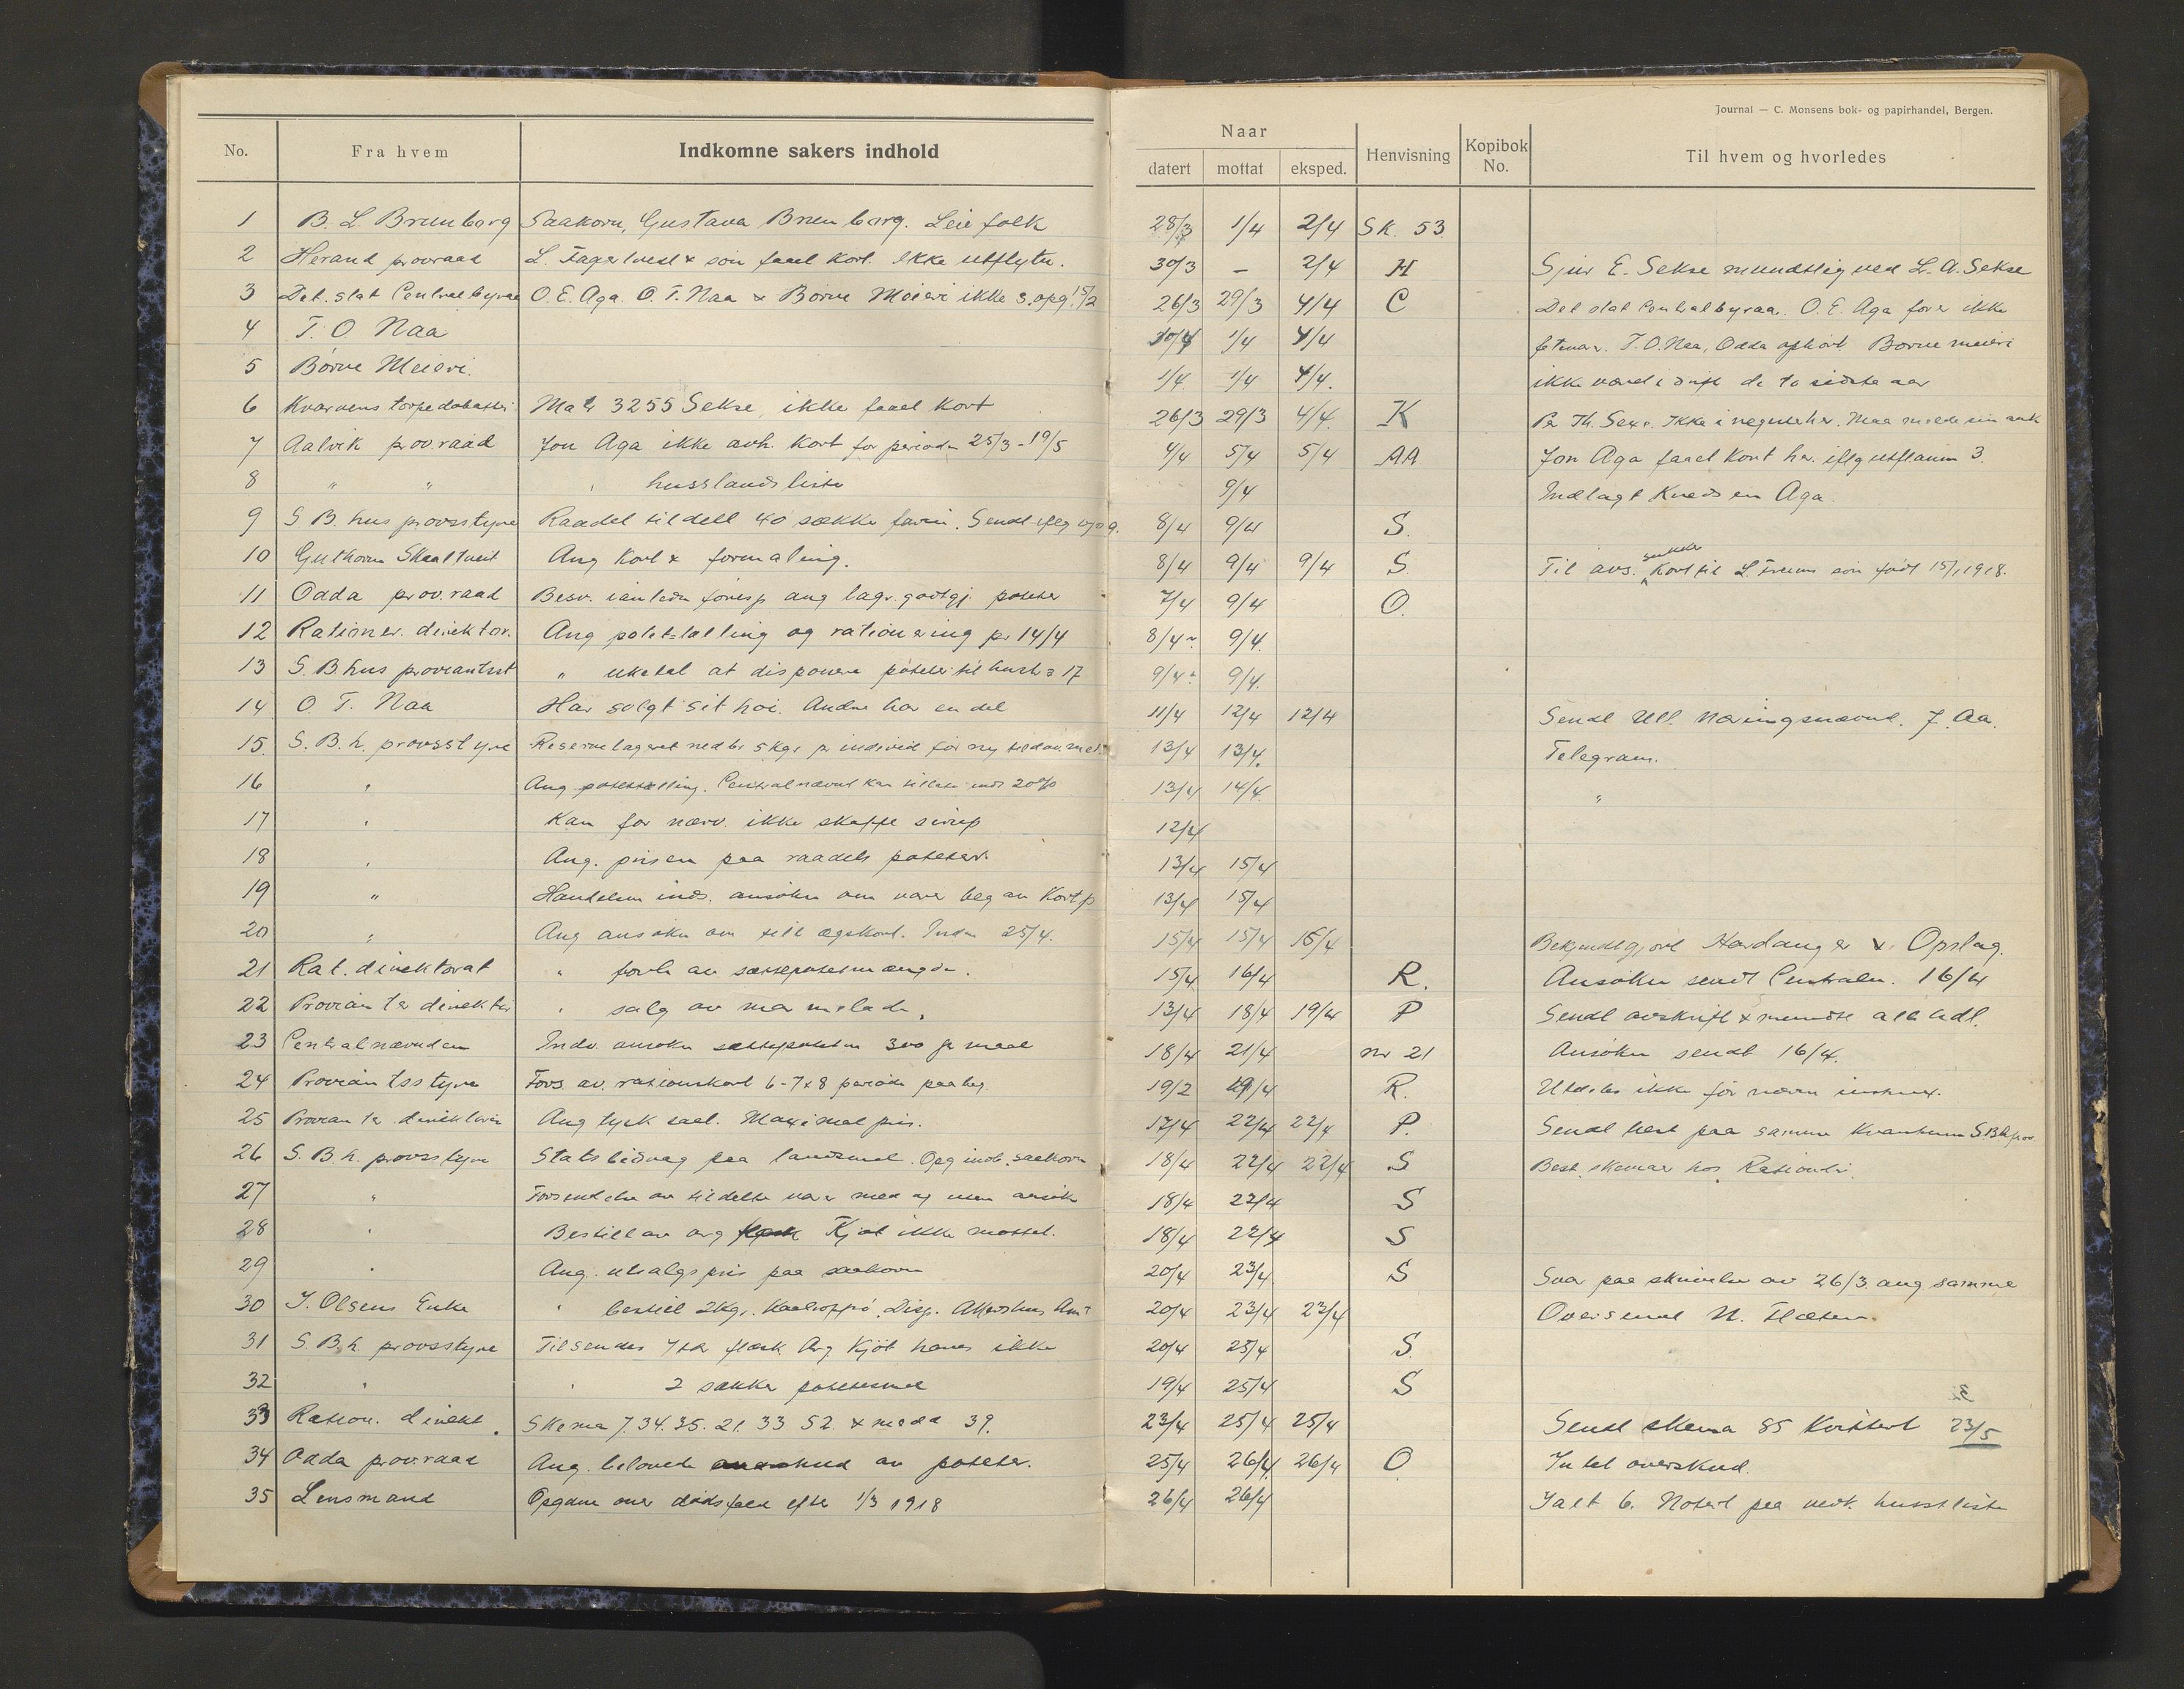 Journal — C. Monsens bok- og papirhandel, Bergen.
No. Fra hvem Indkomne sakers indhold Naar datert mottat eksped. Henvisning Kopibok No. Til hvem og hvorledes
1 B. L. Brunborg Saakorn, Gustava Brunborg. Leiefolk 28/3 1/4 2/4 Sk. 53
2 Herand provraad L. Fagertveit & sön faaet kort. Ikke utflytn. 30/3 – 2/4 H Sjur E. Sekse mundtlig ved L. A. Sekse
3 Det. stat Centralbyraa O. E. Aga. O. T. Naa & Börve Meieri ikke s. opg. 15/2 26/3 29/3 4/4 C Det stat Centralbyraa. O. E. Aga for ikke
4 T. O Naa 1/4 4/4 T. O. Naa, Odda ophört Börve meieri
5 Börve Meieri. 1/4 1/4 4/4. ikke været i drift de to sidste aar
6 Kvarvens torpedobatteri Matr 3255 Sekse, ikke faaet kort 26/3 29/3 4/4. K Per Th. Sexe. Ikke i registeret her. Maa melde sin ank
7 Aalvik prov.raad Jon Aga ikke avh. kort for perioden 25/3 - 19/5 4/4 5/4 5/4 AA Jon Aga faaet kort her. iflg utflanm 3.
8 " " " husstandsliste 9/4 Indlagt Knedsen Aga.
9 S B. hus provsstyre Raadet tildelt 40 sække farin. Sendt iflg opg. 8/4 9/4 S.
10 Guthorm Skaaltveit Ang Kort & formaling. 8/4 9/4 9/4 S Til avs. sukker Kort til L. sön född 15/1 1918.
11 Odda prov.raad Besv. ianledn föresp ang lagr. godtgj poteter 7/4 9/4 O.
12 Rationer. direktor. Ang potettælling og rationering pr 14/4 8/4 9/4.
13 S. B. hus proviantsst " uketal at disponere poteter til husst = 17 9/4 9/4.
14 O. T. Naa Har solgt sit höi. Andre har en del 11/4 12/4 12/4 Sendt Ull. Næringsnævnd. J. Aa.
15. S. B. h. provsstyre Reservelageret ned til 5 kgr pr individ för ny tildeling 13/4 13/4. Telegram.
16 " Ang potettælling. Centralnævnd kan tillate inds 20% 13/4 14/4. "
17 " Kan for nærv. ikke skaffe sirup 12/4
18 " Ang. prisen paa raadets poteter. 13/4 15/4
19 " Handelsm inds. ansökn om varer beg av Kort p 13/4 15/4
20 " Ang ansökn om till ægskort. Inden 25/4. 15/4 15/4 15/4 Bekjendtgjort Hardanger & Opslag.
21 Rat. direktorat " forbr av sættepotetmængde. 15/4 16/4 R. Ansökn sendt Centraln. 16/4
22 Provianter direktör " salg av marmelade. 13/4 18/4 19/4 P Sendt avskrift & mundtl alle hdl.
23 Centralnævnden Indv. ansökn sættepoteter 300 pr maal 18/4 21/4 nr 21 Ansökn sendt 16/4.
24 Proviantsstyre Fors. av. rationskort 6 - 7 & 8 periode paabeg. 19/2 19/4 R. Utdeles ikke för nærm instrux.
25 Provianter direktören Ang tysk salt. Maximal pris. 17/4 22/4 22/4 P. Sendt best paa samme kvantum S.B.h.prov.
26 S. B. h. provsstyre Statsbidrag paa landsmel. Opg indb. saakorn 18/4 22/4 22/4 S Best. skemaer hos Rationdir.
27 " Forsendelse av tildelte varer med og uten ansökn 18/4 22/4 S
28 " Bestill av arg Kjöt ikke mottat. 18/4 22/4 S
29 " Ang. utsalgspris paa saakorn 20/4 23/4. S Svar paa skrivelse av 26/3 ang samme
30 J. Olsens Enke " bestilt 2kgr. Kaalrotfrö. Disp. Akershus Amt 20/4 23/4 23/4 Oversendt N. Flæten.
31 S. B. h. provsstyre Tilsendes 7 ter flæsk. Arg Kjöt haves ikke 20/4 25/4 S.
32 " " 2 sækker potetesmel 19/4 25/4 S
33 Ration. direkt. Skema 7. 34. 35. 21. 33 52. & medd 39. 23/4 25/4 25/4 Sendt skema 85 Kvittert 23/5
34 Odda prov.raad Ang. belovede av poteter. 25/4 26/4 26/4 O Intet overskud.
35 Lensmand Opgave over dödsfald efter 1/3 1918 26/4 26/4 Ialt 6. Notert paa vedk. husstliste